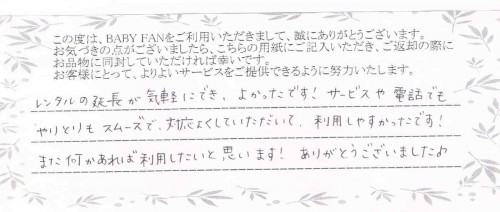 この度は、BABY FANをご利用いただきまして、誠にありがとうございます。
お気づきの点がございましたら、こちらの用紙にご記入いただき、ご返却の際に
お品物に同封していただければ幸いです。
お客様にとって、よりよいサービスをご提供できるように努力いたします。
レンタルの延長が気軽にでき、よかったです！サービスや電話でも
やりとりもスムーズで、対応よくしていただいて、利用しやすかったです！
また何かあれば利用したいと思います！ありがとうございました♪